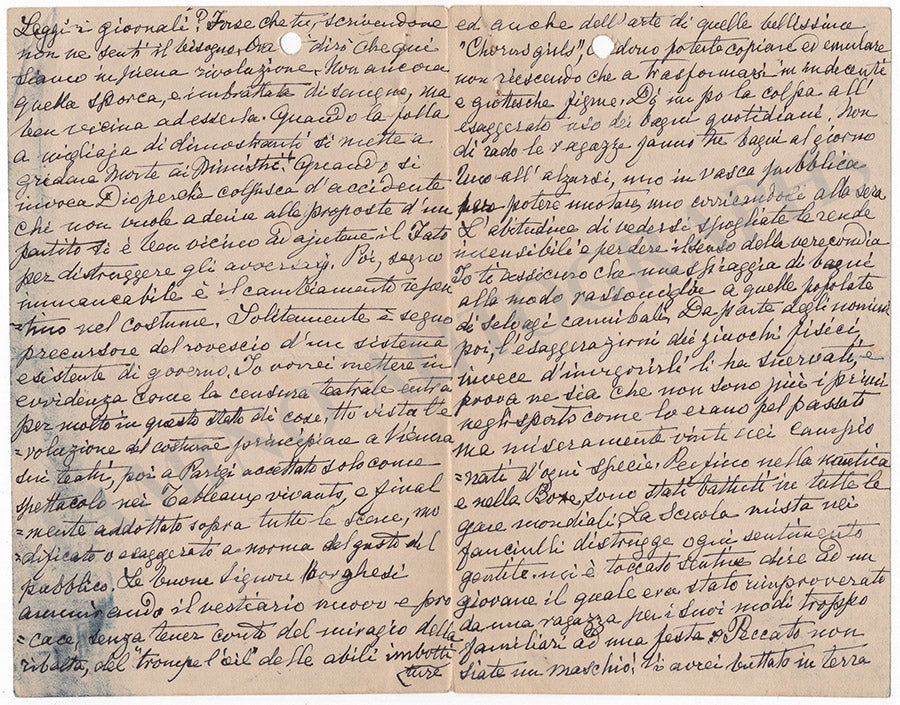 Leggi i giornali? Forse che tu, scrivendone
non ne senti il bisogno, Ora ti dirò che qui
siamo in piena rivoluzione. Non ancora
quella sporca, e imbrattata di sangue, ma
ben vicina ad esserla. Quando la folla
a migliaja di dimostranti si mette a
gridare Morte ai Ministri! Quando si
invoca Dio perchè colpisca d'accidente
chi non vuole aderire alle proposte d'un
partito si è ben vicino ad ajutare il Fato
per distruggere gli avversarj. Poi, segno
immancabile è il cambiamento repen
=tino nel costume. Solitamente è segno
precursore del rovescio d'un sistema
esistente di governo. Io vorrei mettere in
evidenza come la censura teatrale entra
per molto in questo stato di cose. Ho vista l'e
=voluzione del costume principiare a Vienna
sui teatri, poi a Parigi accettato solo come
spettacolo nei Tableaux vivants, e final
=mente addottato sopra tutte le scene, mo
=dificato o esaggerato a norma del gusto del
pubblico. Le buone Signore Borghesi
ammirando il vestiario nuovo e pro
=cace, senza tener conto del miraggio della
ribalta, del "trompe l'œil" delle abili imbotti
ture
ed anche dell'arte di quelle bellissime
"Chorus girls", credono poterle copiare ed emulare
non riescendo che a trasformarsi in indecenti
e grottesche figure. Dò un po la colpa all'
esaggerato uso dei bagni quotidiani. Non
di rado le ragazze fanno tre bagni al giorno
Uno all'alzarsi, uno in vasca pubblica
per potere nuotare, uno coricandosi alla sera.
L'abitudine di vedersi spogliate le rende
insensibili e perdere il senso della verecondia
Io ti assicuro che una spiaggia di bagni
alla moda rassomiglia a quelle popolate
di selvagi cannibali. Da parte degli uomini
poi, l'esaggerazioni dei giuochi fisici,
invece d'invigorirli li ha snervati, e
prova ne sia che non sono più i primi
negli sports come lo erano pel passato
ma miseramente vinti nei campio
=nati d'ogni specie. Perfino nella nautica
e nella Boxe, sono stati battuti in tutte le
gare mondiali. La Scuola mista nei
fanciulli distrugge ogni sentimento
gentile. mi è toccato sentire dire ad un
giovane il quale era stato rimproverato
da una ragazza per i suoi modi troppo
familiari ad una festa: "Peccato non
siate un maschio! Vi avrei buttato in terra